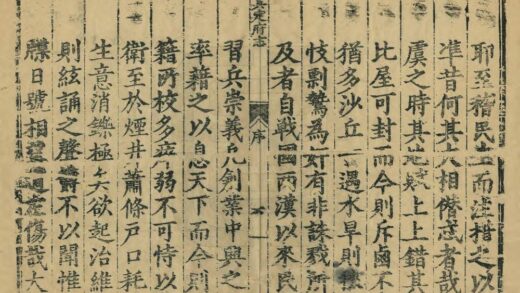 耶至稽民生而注措之以
准昔何其大相僭忒者哉
虞之時其地上上錯其
比屋可封而今則斥鹵不
猶多沙丘一遇水旱則
忮剽驁為奸有非誅戮所
及者自戰國兩漢以來民
定府志
序
習兵崇義凡創業中興之
率籍之以息天下而今則
籍所校多疲弱不可恃以
衛至於煙井蕭條戶口耗
生意消鑠極矣欲起治維
則絃誦之聲不以聞惟
牒日號相望傷哉大